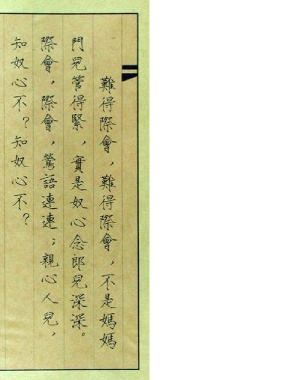 難得際會，難得際會，不是媽媽
門兒管得緊，實是奴心念郎兒深深。
際會，際會，鶯語連連；親心人兒，
知奴心不？知奴心不？